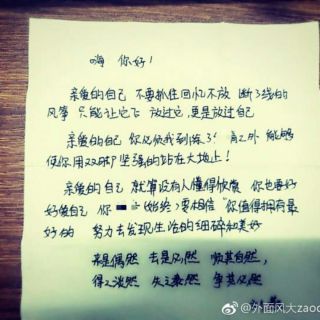 嗨 你好!
亲爱的自己 不要抓住回忆不放 断了线的
风筝 只能让它飞 放过它,更是放过自己
亲爱的自己 你
使你用双脚坚强的站在大地上!
亲爱的自己 就算没有人懂得欣赏 你也要好
好爱自己 你 始终要相信“你值得拥有最
好的 努力去发现生活的细碎和美好
来是偶然 去是必然 顺其自然,
得之淡然 失之泰然 争其必然
@外面风大zaoc